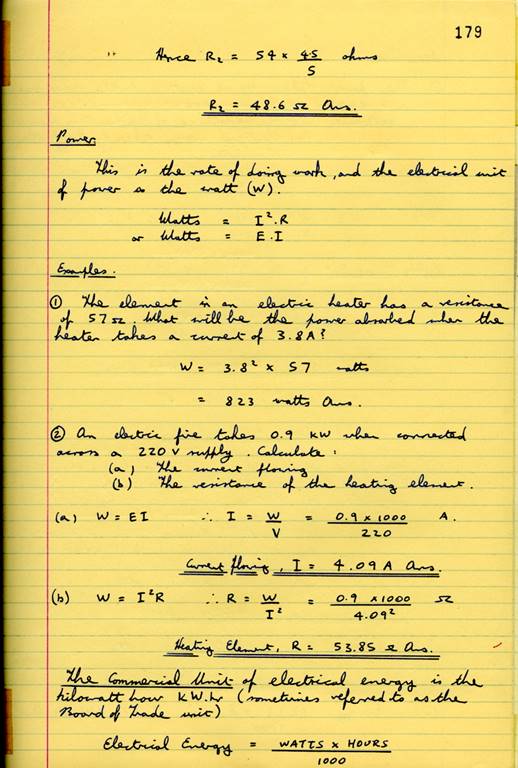 179
" Hence R₂ = 54 × 4.5/5 ohms
R₂ = 48.6 Ω Ans.
Power
This is the rate of doing work, and the electrical unit
of power is the watt (W).
Watts = I².R
or Watts = E.I
Examples.
① The element in an electric heater has a resistance
of 57 Ω. What will be the power absorbed when the
heater takes a current of 3.8A?
W = 3.8² × 57 watts
= 823 watts Ans.
② An electric fire takes 0.9 KW when connected
across a 220 V supply. Calculate:
(a) The current flowing
(b) The resistance of the heating element.
(a) W = EI ∴ I = W/V = 0.9 × 1000/220 A.
Current flowing, I = 4.09 A Ans.
(b) W = I²R ∴ R = W/I² = 0.9 × 1000/4.09² Ω
Heating Element, R = 53.85 Ω Ans.
The Commercial Unit of electrical energy is the
kilowatt hour K.W.hr (sometimes referred to as the
Board of Trade unit)
Electrical Energy = WATTS × HOURS/1000